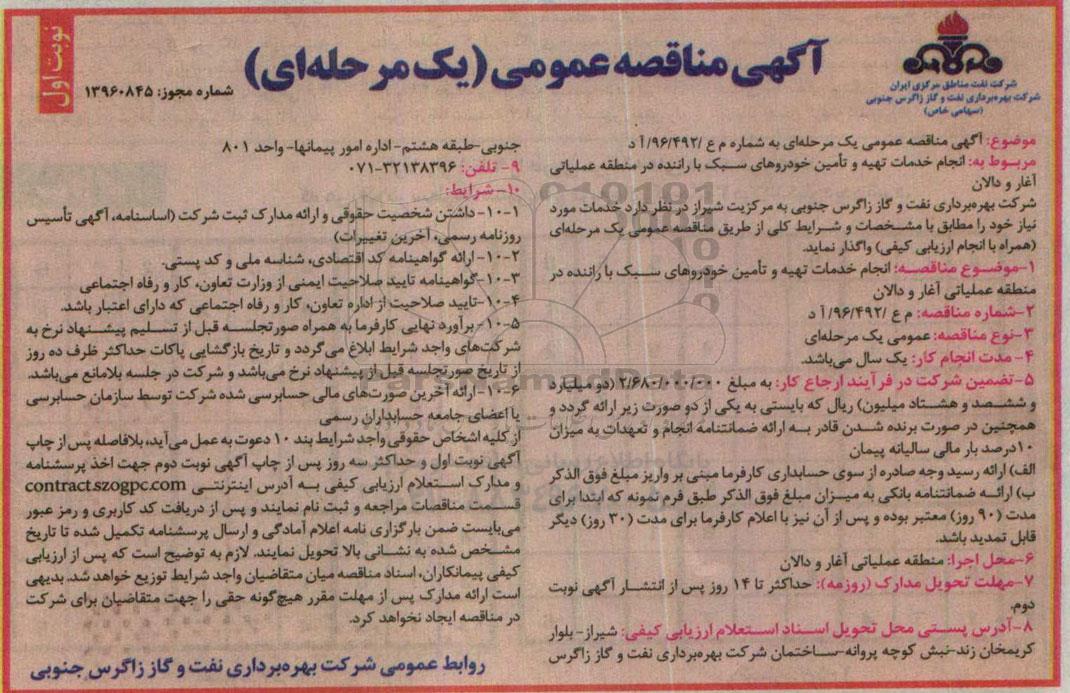 نوبت اول
آگهی مناقصه عمومی (یک مرحله‌ای)
شماره مجوز: ۱۳۹۶۰۸۴۵
شرکت نفت مناطق مرکزی ایران
شرکت بهره‌برداری نفت و گاز زاگرس جنوبی
(سهامی خاص)
موضوع: آگهی مناقصه عمومی یک مرحله‌ای به شماره م ع /۹۶/۴۹۲/ آ د
مربوط به: انجام خدمات تهیه و تأمین خودروهای سبک با راننده در منطقه عملیاتی
آغار و دالان
شرکت بهره‌برداری نفت و گاز زاگرس جنوبی به مرکزیت شیراز در نظر دارد خدمات مورد
نیاز خود را مطابق با مشخصات و شرایط کلی از طریق مناقصه عمومی یک مرحله‌ای
(همراه با انجام ارزیابی کیفی) واگذار نماید.
۱-موضوع مناقصه: انجام خدمات تهیه و تأمین خودروهای سبک با راننده در
منطقه عملیاتی آغار و دالان
۲-شماره مناقصه: م ع /۹۶/۴۹۲/ آ د
۳-نوع مناقصه: عمومی یک مرحله‌ای
۴- مدت انجام کار: یک سال می‌باشد.
۵-تضمین شرکت در فرآیند ارجاع کار: به مبلغ ۲/۶۸۰/۰۰۰/۰۰۰ (دو میلیارد
و ششصد و هشتاد میلیون) ریال که بایستی به یکی از دو صورت زیر ارائه گردد و
همچنین در صورت برنده شدن قادر به ارائه ضمانتنامه انجام و تعهدات به میزان
۱۰درصد بار مالی سالیانه پیمان
الف) ارائه رسید وجه صادره از سوی حسابداری کارفرما مبنی بر واریز مبلغ فوق الذکر
ب) ارائه ضمانتنامه بانکی به میزان مبلغ فوق الذکر طبق فرم نمونه که ابتدا برای
مدت (۹۰ روز) معتبر بوده و پس از آن نیز با اعلام کارفرما برای مدت (۳۰ روز) دیگر
قابل تمدید باشد.
۶-محل اجرا: منطقه عملیاتی آغار و دالان
۷-مهلت تحویل مدارک (روزمه): حداکثر تا ۱۴ روز پس از انتشار آگهی نوبت
دوم.
۸-آدرس پستی محل تحویل اسناد استعلام ارزیابی کیفی: شیراز- بلوار
کریمخان زند-نبش کوچه پروانه-ساختمان شرکت بهره‌برداری نفت و گاز زاگرس
جنوبی-طبقه هشتم- اداره امور پیمانها- واحد ۸۰۱
۹- تلفن: ۳۲۱۳۸۳۹۶-۰۷۱
۱۰- شرایط:
۱۰-۱- داشتن شخصیت حقوقی و ارائه مدارک ثبت شرکت (اساسنامه، آگهی تأسیس
روزنامه رسمی، آخرین تغییرات)
۱۰-۲- ارائه گواهینامه کد اقتصادی، شناسه ملی و کد پستی.
۱۰-۳-گواهینامه تایید صلاحیت ایمنی از وزارت تعاون، کار و رفاه اجتماعی
۱۰-۴-تایید صلاحیت از اداره تعاون، کار و رفاه اجتماعی که دارای اعتبار باشد.
۱۰-۵- برآورد نهایی کارفرما به همراه صورتجلسه قبل از تسلیم پیشنهاد نرخ به
شرکت‌های واجد شرایط ابلاغ می‌گردد و تاریخ بازگشایی پاکات حداکثر ظرف ده روز
از تاریخ صورتجلسه قبل از پیشنهاد نرخ می‌باشد و شرکت در جلسه بلامانع می‌باشد.
۱۰-۶-ارائه آخرین صورت‌های مالی حسابرسی شده شرکت توسط سازمان حسابرسی
یا اعضای جامعه حسابداران رسمی
از کلیه اشخاص حقوقی واجد شرایط بند ۱۰ دعوت به عمل می‌آید، بلافاصله پس از چاپ
آگهی نوبت اول و حداکثر سه روز پس از چاپ آگهی نوبت دوم جهت اخذ پرسشنامه
و مدارک استعلام ارزیابی کیفی به آدرس اینترنتی contract.szogpc.com
قسمت مناقصات مراجعه و ثبت نام نمایند و پس از دریافت کد کاربری و رمز عبور
می‌بایست ضمن بارگزاری نامه اعلام آمادگی و ارسال پرسشنامه تکمیل شده تا تاریخ
مشخص شده به نشانی بالا تحویل نمایند. لازم به توضیح است که پس از ارزیابی
کیفی پیمانکاران، اسناد مناقصه میان متقاضیان واجد شرایط توزیع خواهد شد. بدیهی
است ارائه مدارک پس از مهلت مقرر هیچ‌گونه حقی را جهت متقاضیان برای شرکت
در مناقصه ایجاد نخواهد کرد.
روابط عمومی شرکت بهره‌برداری نفت و گاز زاگرس جنوبی
ParsNamadData